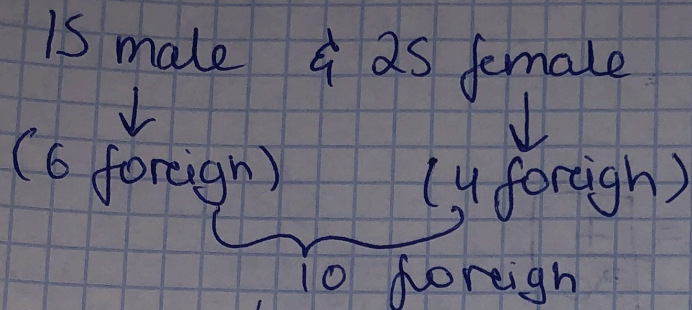 15 male & 25 female
(6 foreigh) (4 foreigh)
10 foreigh